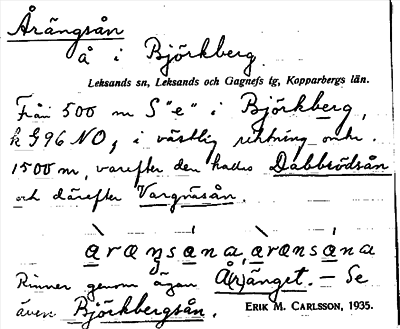 Årängsån
å i Björkberg
Leksands sn, Leksands och Gagnefs tg, Kopparbergs län.
Från 500 m S "e" i Björkberg,
k G96 NO, i västlig riktning omkr.
1500 m, varefter den kallas Dabbsödsån
och därefter Vargnäsån.
àræŋsána, àrænsána
Rinner genom ägan Å(r)änget. – Se
även Björkbergsån.
ERIK M. CARLSSON, 1935.